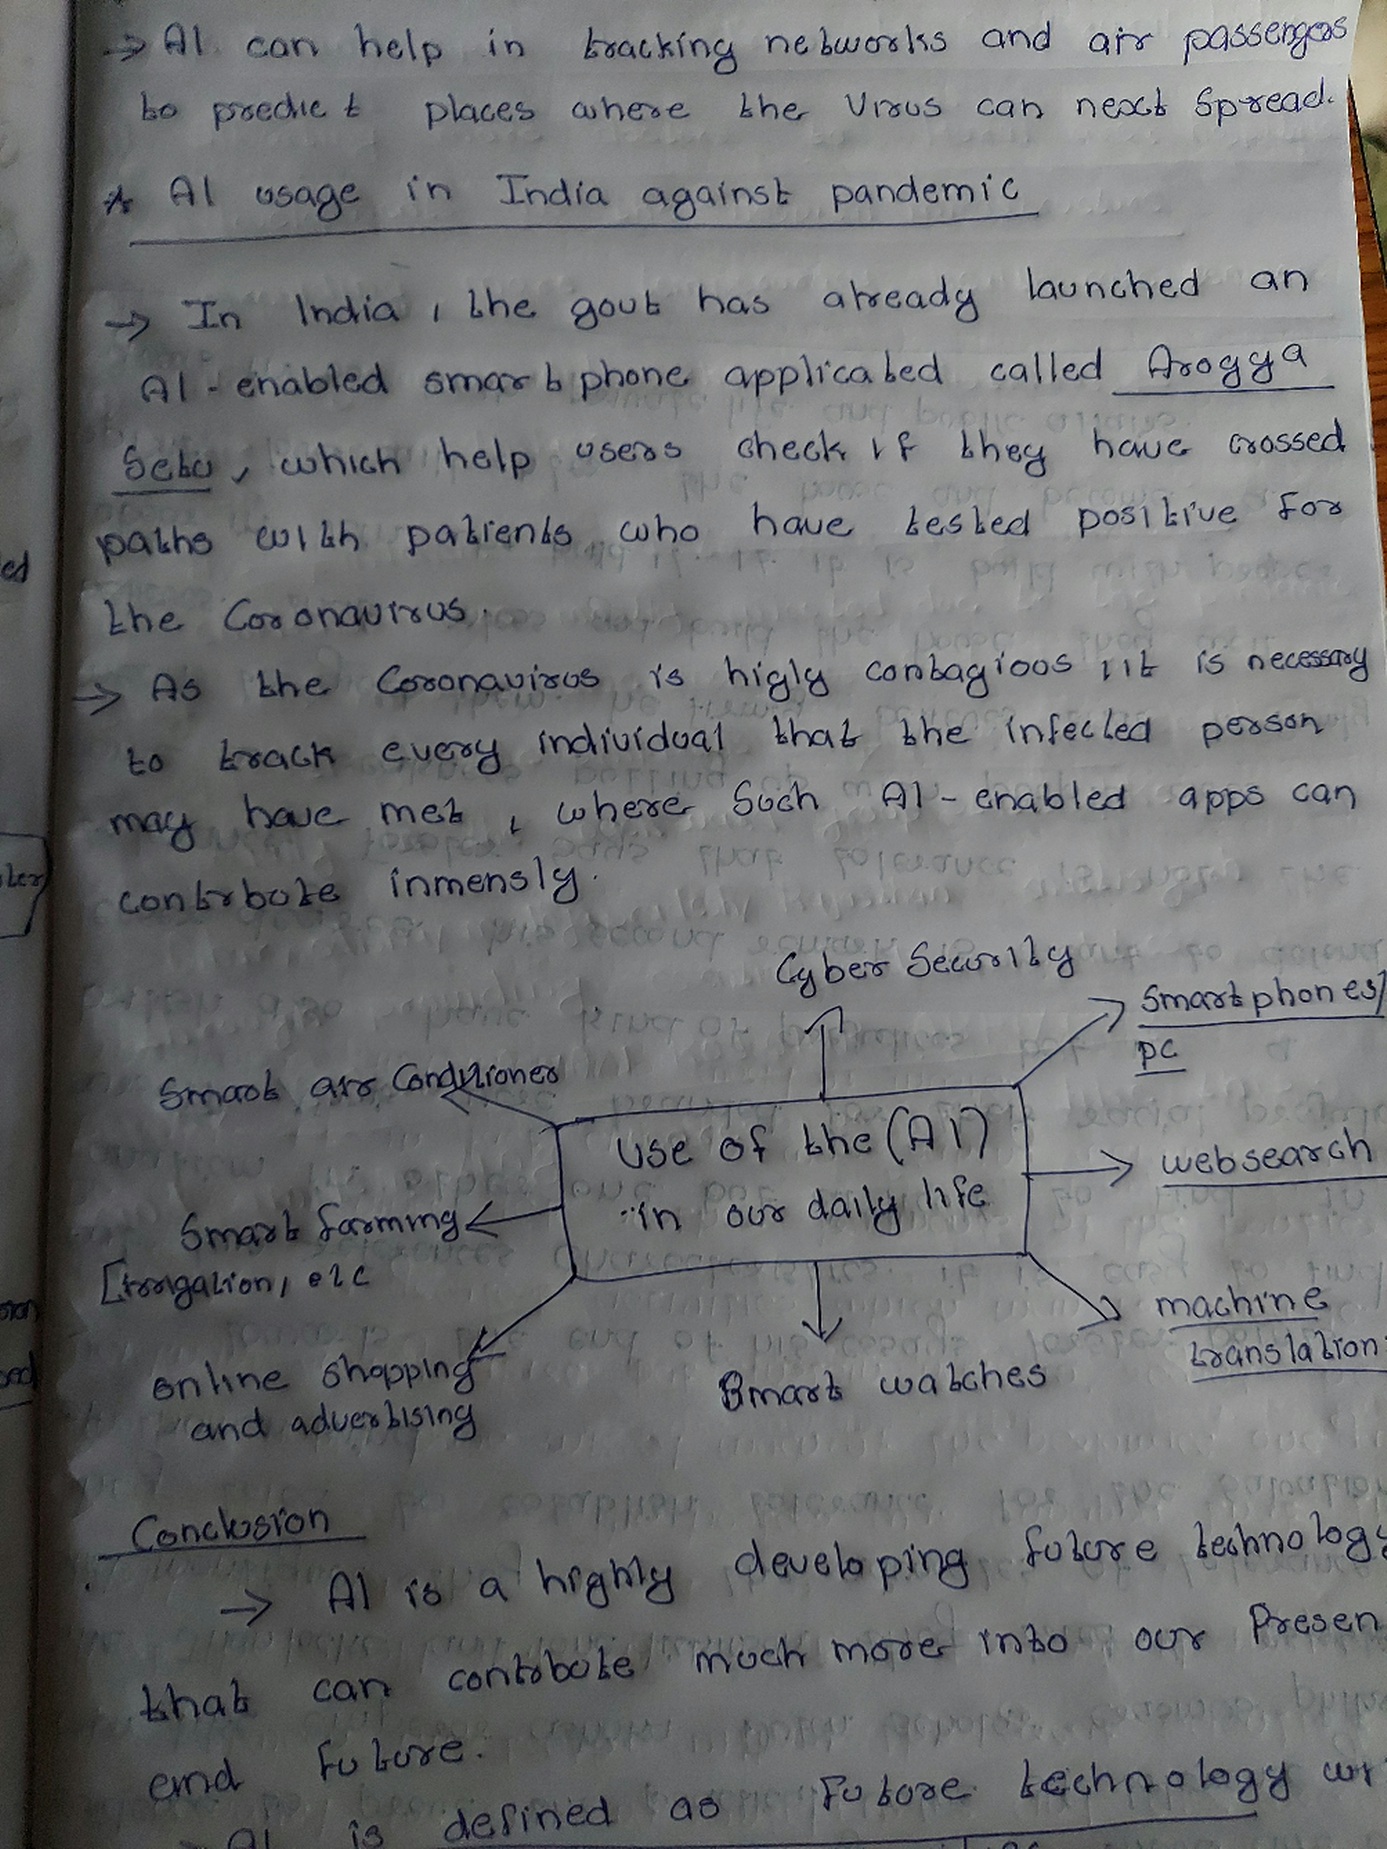 → AI can help in tracking networks and air passengers
to predict places where the Virus can next Spread.
* AI usage in India against pandemic
→ In India, the govt has already launched an
AI-enabled smart phone applicated called Arogya
Setu, which help users check if they have crossed
paths with patients who have tested positive for
the Coronavirus.
→ As the Coronavirus is higly contagious, it is necessary
to track every individual that the infected person
may have met, where Such AI-enabled apps can
contrbute inmensly.
Cyber Security
Smartphones/
pc
Smart air Conditioner
use of the (AI)
in our daily life
websearch
Smart farming
[Irrigation, etc
machine
translation
online shopping
and advertising
Smart watches
Conclusion
→ AI is a highly developing future technology
that can contrbute much more into our Presen
and future.
AI is defined as future technology